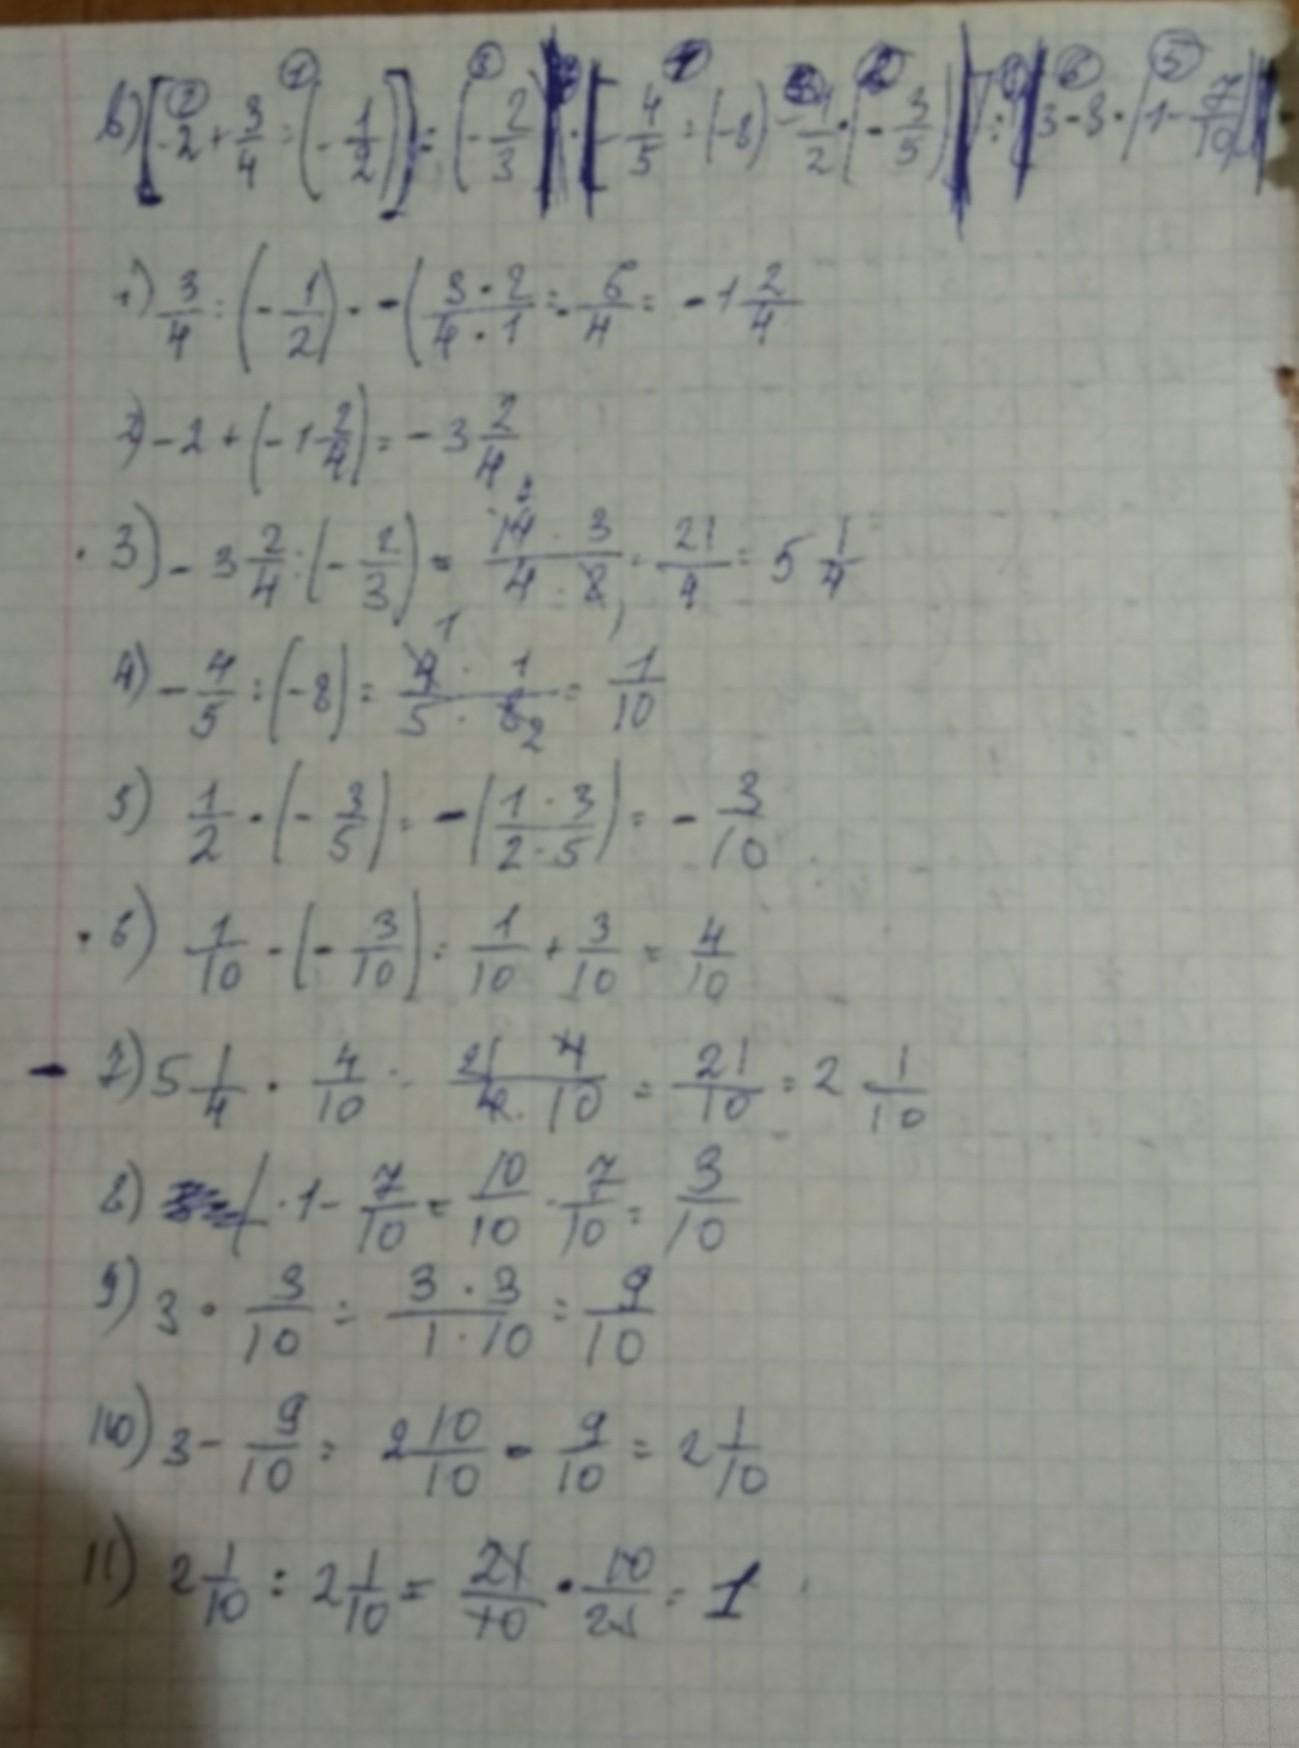 в) [-2 + 3/4 : (-1/2)] : (-2/3) · [-4/5 : (-8) - 1/2 · (-3/5)] : 3 - 3 · (1 - 7/10)
1) 3/4 : (-1/2) · -(3 · 2/4 · 1 = -6/4 = -1 2/4
2) -2 + (-1 2/4) = -3 2/4
3) -3 2/4 : (-2/3) = 14 · 3/4 · 2 = 21/4 = 5 1/4
4) -4/5 : (-8) = 4 · 1/5 · 8 = 1/10
5) 1/2 · (-3/5) = -(1 · 3/2 · 5) = -3/10
6) 1/10 - (-3/10) = 1/10 + 3/10 = 4/10
7) 5 1/4 · 4/10 = 21 4/4 · 10 = 21/10 = 2 1/10
8) 1 - 7/10 = 10/10 - 7/10 = 3/10
9) 3 · 3/10 = 3 · 3/1 · 10 = 9/10
10) 3 - 9/10 = 2 10/10 - 9/10 = 2 1/10
11) 2 1/10 : 2 1/10 = 21/10 · 10/21 = 1